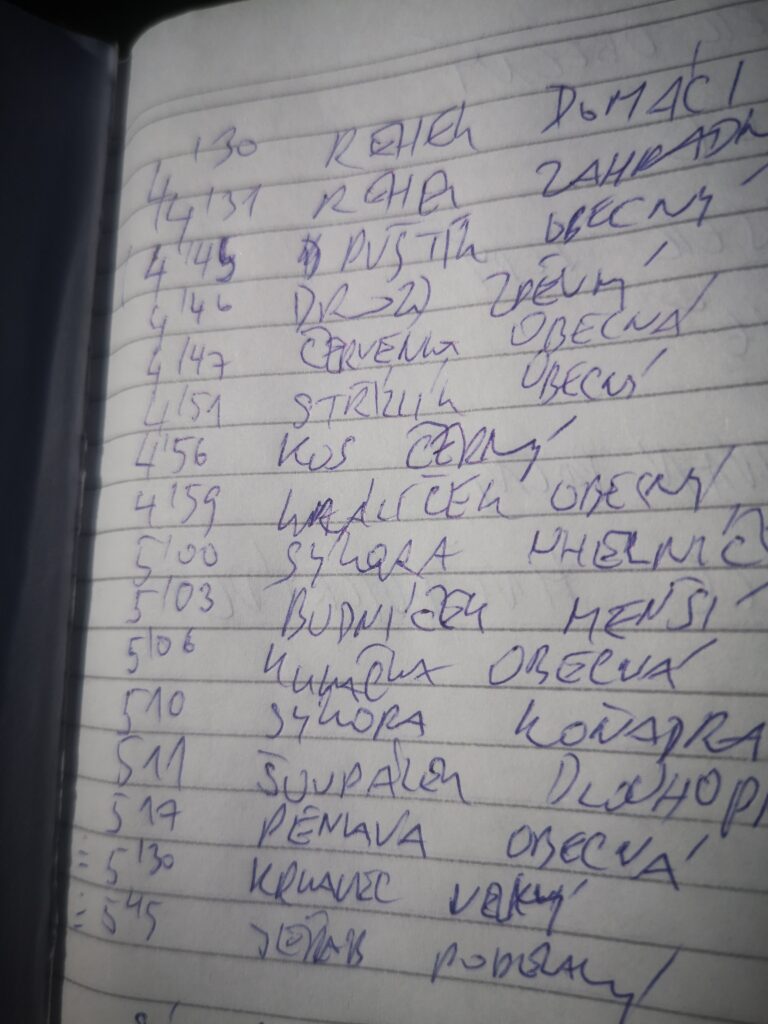 4'30 REHEK DOMÁCÍ
4'31 REHEK ZAHRADN
4'45 PUŠTÍK OBECNÝ
4'46 DROZD ZPĚVNÝ
4'47 ČERVENKA OBECNÁ
4'51 STŘÍZLÍK OBECNÝ
4'56 KOS ČERNÝ
4'59 KRÁLÍČEK OBECNÝ
5'00 SÝKORA UHELNÍČ
5'03 BUDNÍČEK MENŠÍ
5'06 KUKAČKA OBECNÁ
510 SÝKORA KOŇADRA
511 ŠOUPÁLEK DLOUHOPR
517 PĚNKAVA OBECNÁ
5'30 KRKAVEC VELKÝ
5'45 JEŘÁB POPELAVÝ